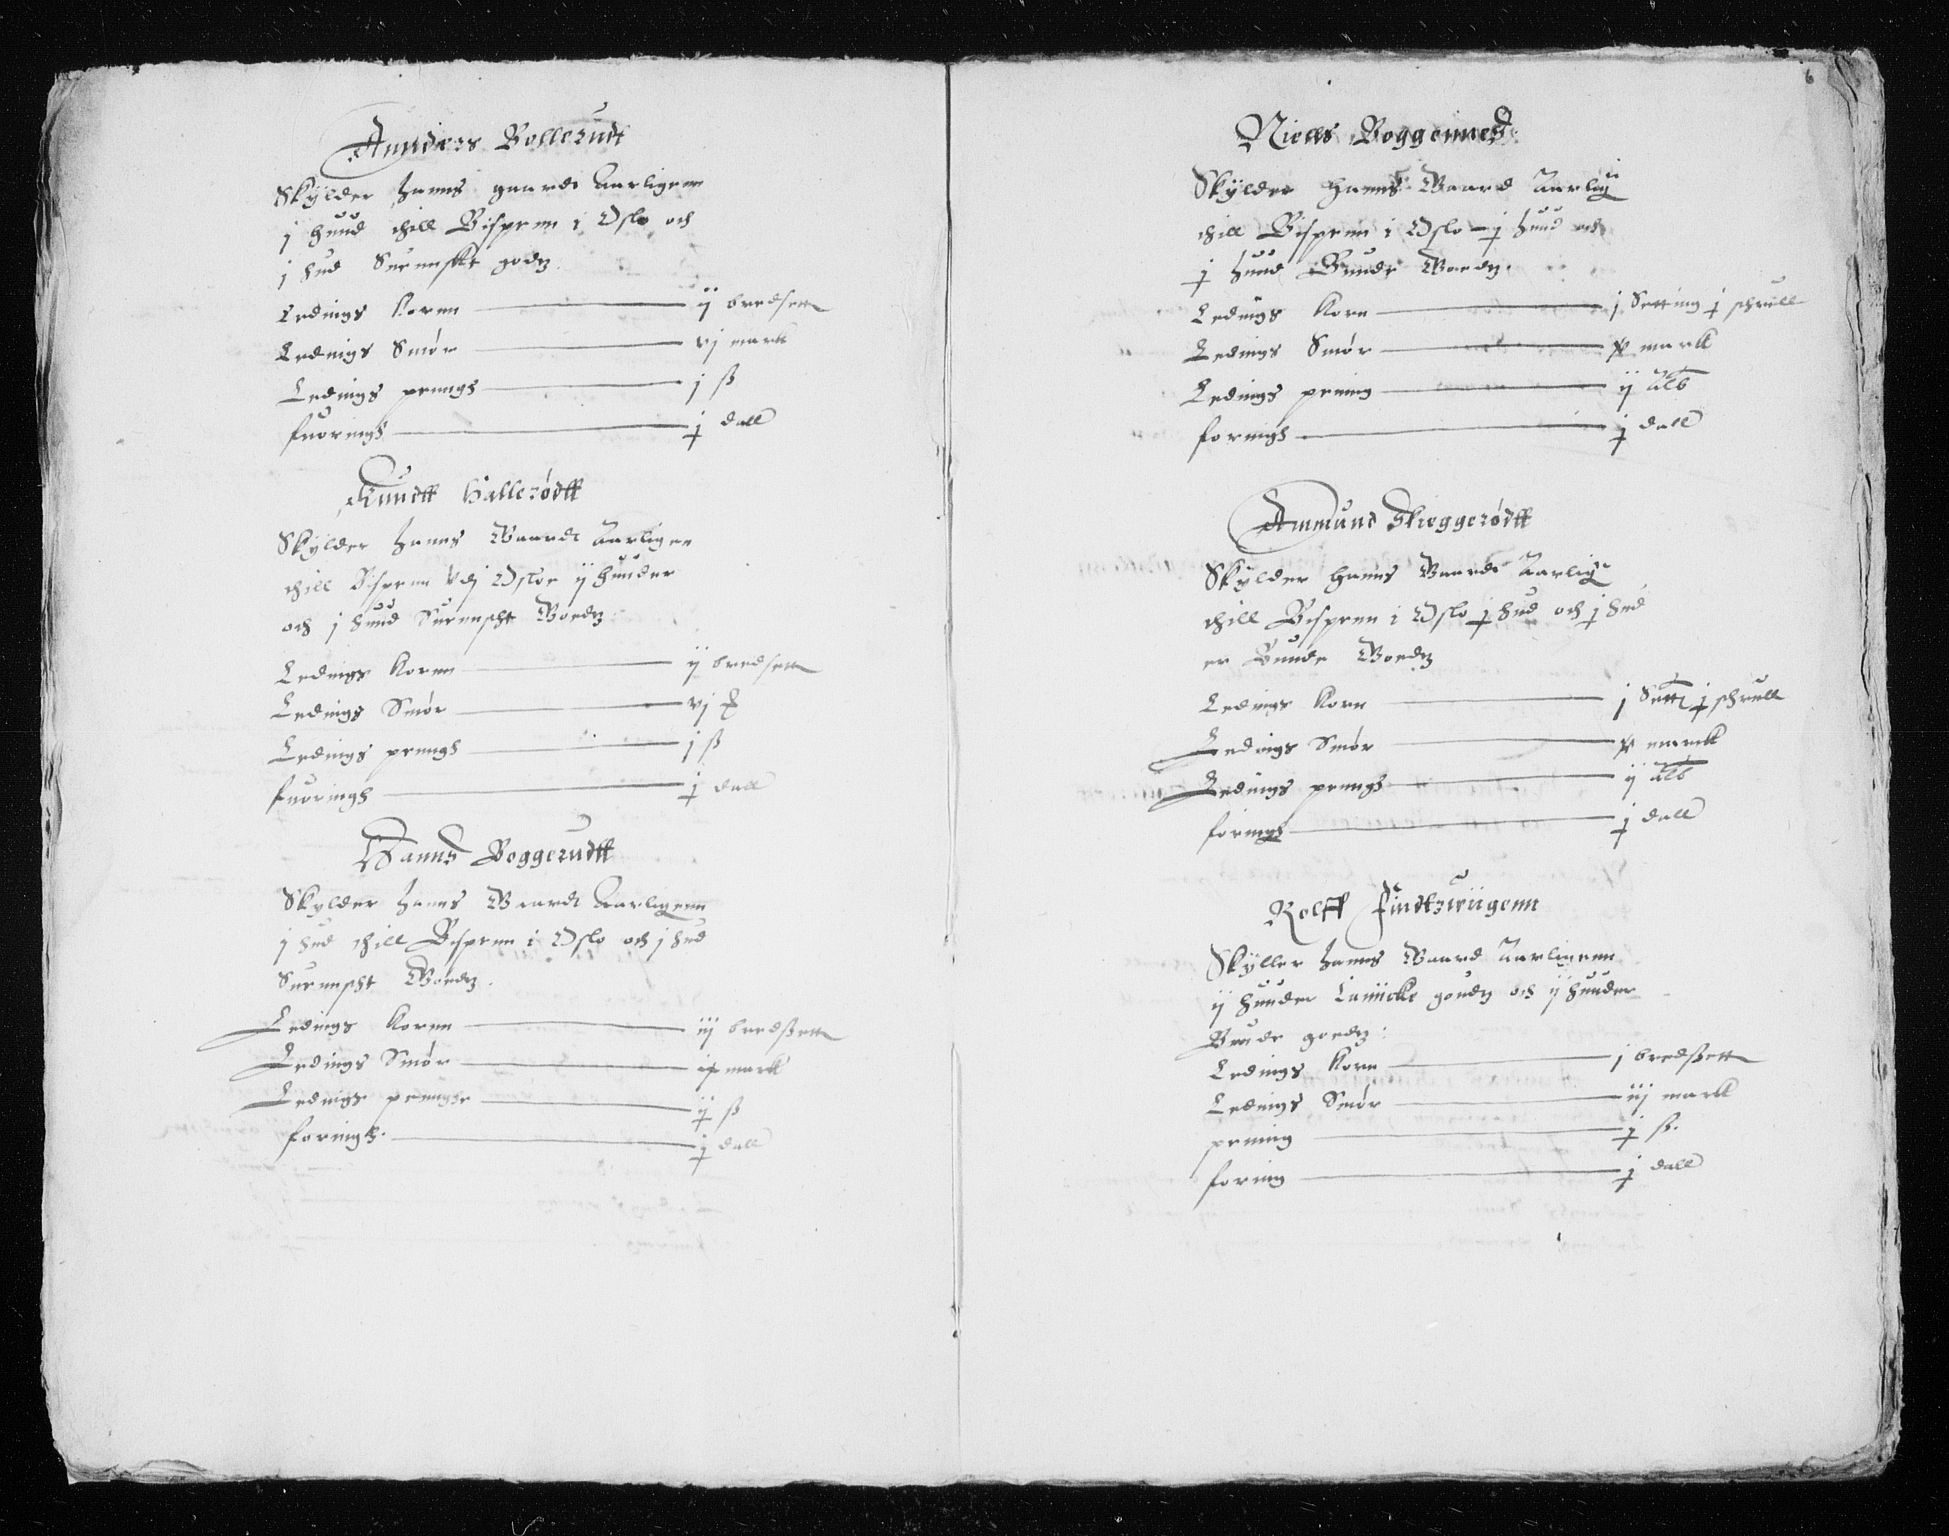 Annders Bollerudt
Skylder hanns gaardt Aarligenn
j huud thill Bispenn i Oslo och
j hud Suennske godz
Ledings Kornn ij bredsett
Ledings Smør vj mark
Ledings penngh j ß
fuoringh j dall
Knudtt Hallerødtt
Skylder hanns Gaardt Aarligen
thill Bispenn vdj Osloe ij huuder
och j huud Suenscht Goedz
Ledings Kornn ij bredsett
Ledings Smør vj
Ledings penngh j ß
fuoringh j dall
Hanns Boggerudtt
Skylder hanns Gaardt Aarligenn
j hud thill Bispenn i Oslo och j hud
Suenscht Goedz
Ledings Kornn iij bredßett
Ledings Smør ix mark
Ledings pennghe ij ß
foringh j dall
6
Niells Boggennes
Skylder hanns Gaard Aarlig
thill Bispenn i Oslo j huud och
j huud Bunde Goedz
Ledings Korn j Setting j schrull
Ledings Smør mark
Ledings penning ij alb
foringh j dall
Ammund Skeggerødtt
Skylder hanns Gaardt Aarlig
thill Bispenn i Oslo j hud och j hud
er Bunde Goedz
Ledings Korn j Sett j schrull
Ledings Smør marck
Ledings penngh ij alb
foringh j dall
Rolff
Skyller hanns Gaard Aarligenn
ij huuder goudz och ij huuder
Bunde goedz
Ledings Korn j bredßett
Ledings Smør iij mark
penning j ß
foring j dall